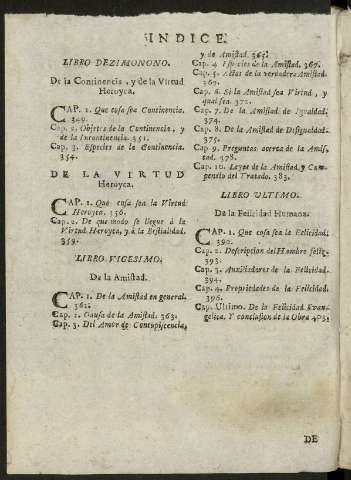 INDICE.
LIBRO DEZIMONONO.
De la Continencia, y de la Virtud
Heroyca.
CAP. 1. Que cosa sea Continencia.
349.
Cap. 2. Objetos de la Continencia, y
de la Incontinencia. 351.
Cap. 3. Especies de la Continencia.
354.
DE LA VIRTUD
Heroyca.
CAP. 1. Que cosa sea la Virtud
Heroyca. 356.
Cap. 2. De que modo se llegue à la
Virtud Heroyca, y à la Bestialidad.
359.
LIBRO VICESIMO.
De la Amistad.
CAP. 1. De la Amistad en general.
362.
Cap. 2. Causa de la Amistad. 363.
Cap. 3. Del Amor de Concupiscencia,
y de Amistad. 365.
Cap. 4. Especies de la Amistad. 367.
Cap. 5. Actos de la verdadera Amistad.
369.
Cap. 6. Si la Amistad sea Virtud, y
qual sea. 372.
Cap. 7. De la Amistad de Igualdad.
374.
Cap. 8. De la Amistad de Desigualdad.
375.
Cap. 9. Preguntas acerca de la Amis-
tad. 378.
Cap. 10. Leyes de la Amistad, y Com-
pendio del Tratado. 383.
LIBRO ULTIMO.
De la Felicidad Humana.
CAP. 1. Que cosa sea la Felicidad.
390.
Cap. 2. Descripcion del Hombre feliz.
393.
Cap. 3. Auxiliadores de la Felicidad.
394.
Cap. 4. Propriedades de la Felicidad.
396.
Cap. Ultimo. De la Felicidad Evan-
gelica, Y conclusion de la Obra 403.
DE